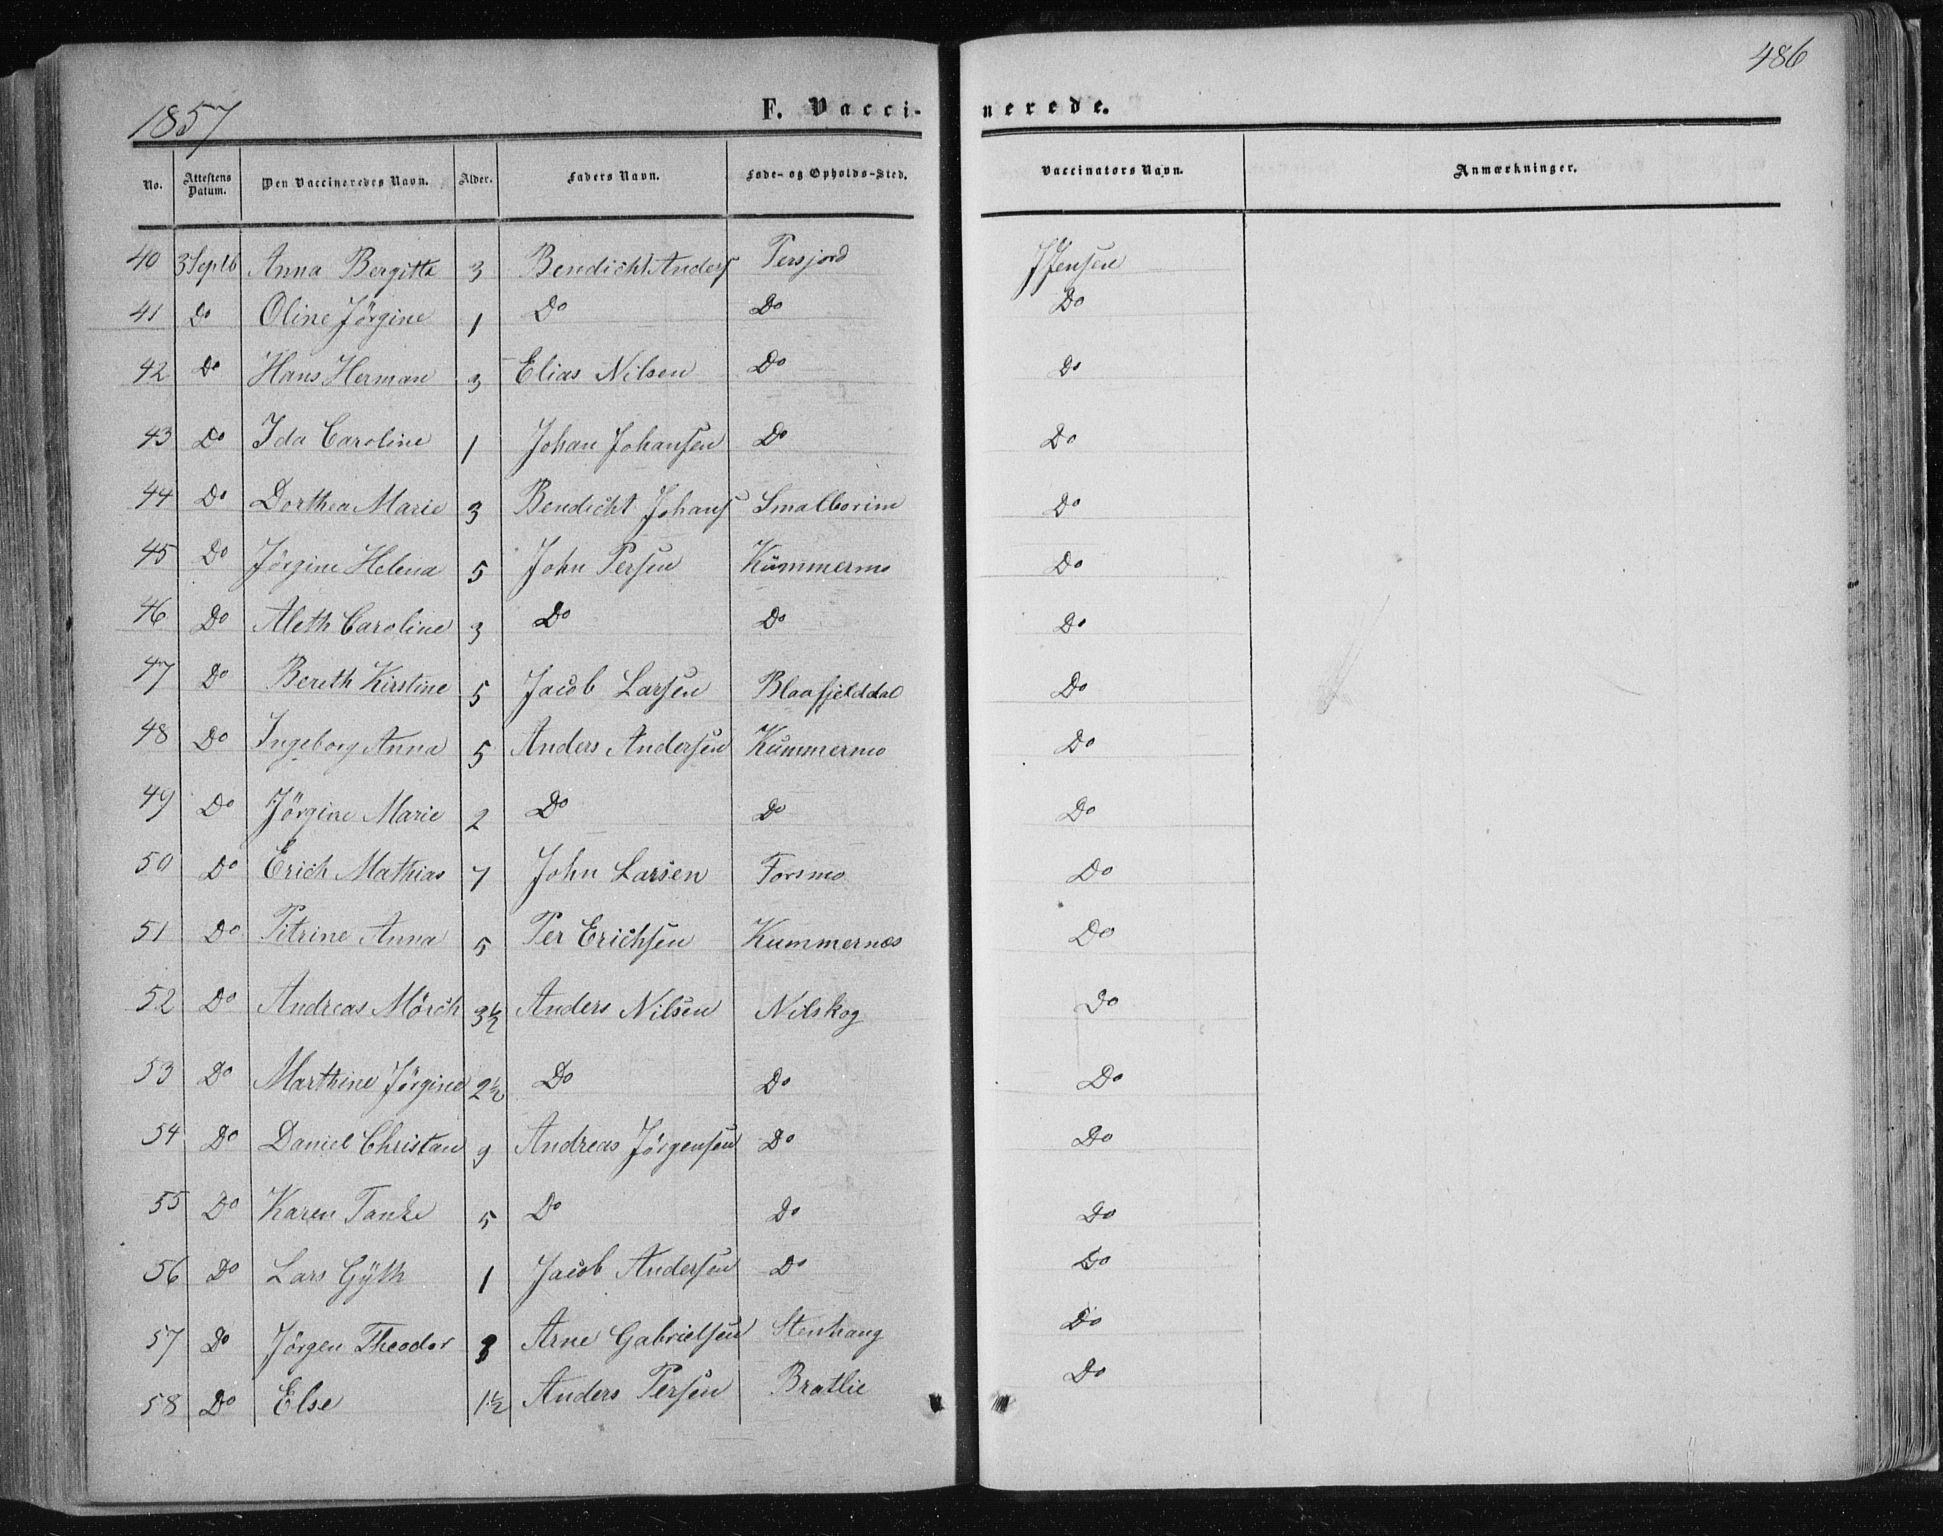 486
1857
F. Vaccinerede.
No. Attestens Datum. Den Vaccineredes Navn. Alder. Faders Navn. Føde- og Opholds-Sted. Vaccinators Navn. Anmærkninger.
40 3 Septb Anna Bergitte 3 Bendicht Anders Persjord J Jensen
41 Do Oline Jörgine 1 Do Do Do
42 Do Hans Herman 3 Elias Nilsen Do Do
43 Do Ida Caroline 1 Johan Johansen Do Do
44 Do Dorthea Marie 3 Bendicht Johans Do
45 Do Jörgine Helena 5 John Persen Kummermo Do
46 Do Aleth Caroline 3 Do Do Do
47 Do Bereth Kirstine 5 Jacob Larsen Blaafjelddal Do
48 Do Ingeborg Anna 5 Anders Andersen Kummermo Do
49 Do Jörgine Marie 2 Do Do Do
50 Do Erich Mathias 7 John Larsen Forsmo Do
51 Do Pitrine Anna 5 Per Erichsen Kummernes Do
52 Do Andreas Mörch 3½ Anders Nilsen Nilskog Do
53 Do Marthine Jörgine 2½ Do Do Do
54 Do Daniel Christan 9 Andreas Jörgensen Do Do
55 Do Karen Tanke 5 Do Do Do
56 Do Lars Gÿth 1 Jacob Andersen Do Do
57 Do Jörgen Theodor 3 Arne Gabrielsen Stenhaug Do
58 Do Else 1½ Anders Persen Bratlie Do